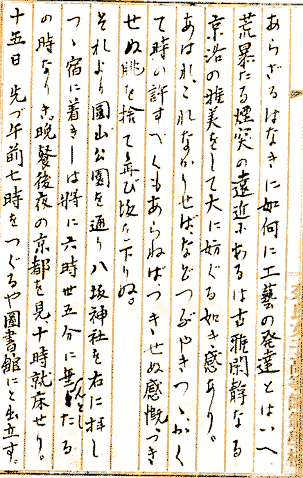 あらざるはなきに如何に工藝の発達とはいへ
荒暴たる煙突の遠近にあるは古雅閑静なる
京洛の雅美をして大に妨ぐる如き感あり。
あはれこれなかりせばなどつぶやきつゝかく
て時の許すべくもあらねばつきせぬ感慨つき
せぬ眺を捨て再び坂を下りぬ。
それより圓山公園を通り八坂神社を右に拝し
つゝ宿に着きしは将に六時卅五分に垂んとしたる
の時なりき。晩餐後夜の京都を見十時就床せり。
十五日 先づ午前七時をつぐるや圖書館にと出立す。